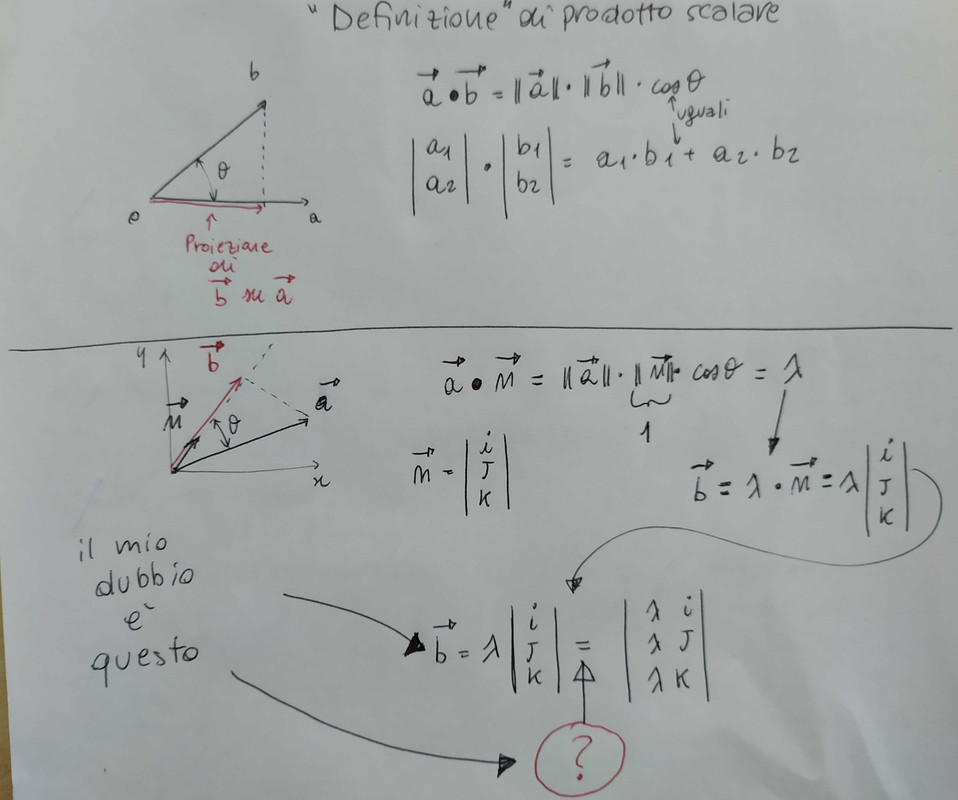 "Definizione" di prodotto scalare
b
θ
o
a
Proiezione
di
b⃗ su a⃗
a⃗ • b⃗ = ‖a⃗‖ · ‖b⃗‖ · cos θ
uguali
|a1 a2| · |b1 b2| = a1·b1 + a2·b2
y
b⃗
a⃗
M⃗
θ
x
a⃗ • M⃗ = ‖a⃗‖ · ‖M⃗‖ · cos θ = λ
1
M⃗ = |i J K|
b⃗ = λ · M⃗ = λ |i J K|
il mio
dubbio
e'
questo
b⃗ = λ |i J K| = |λi λJ λK|
?